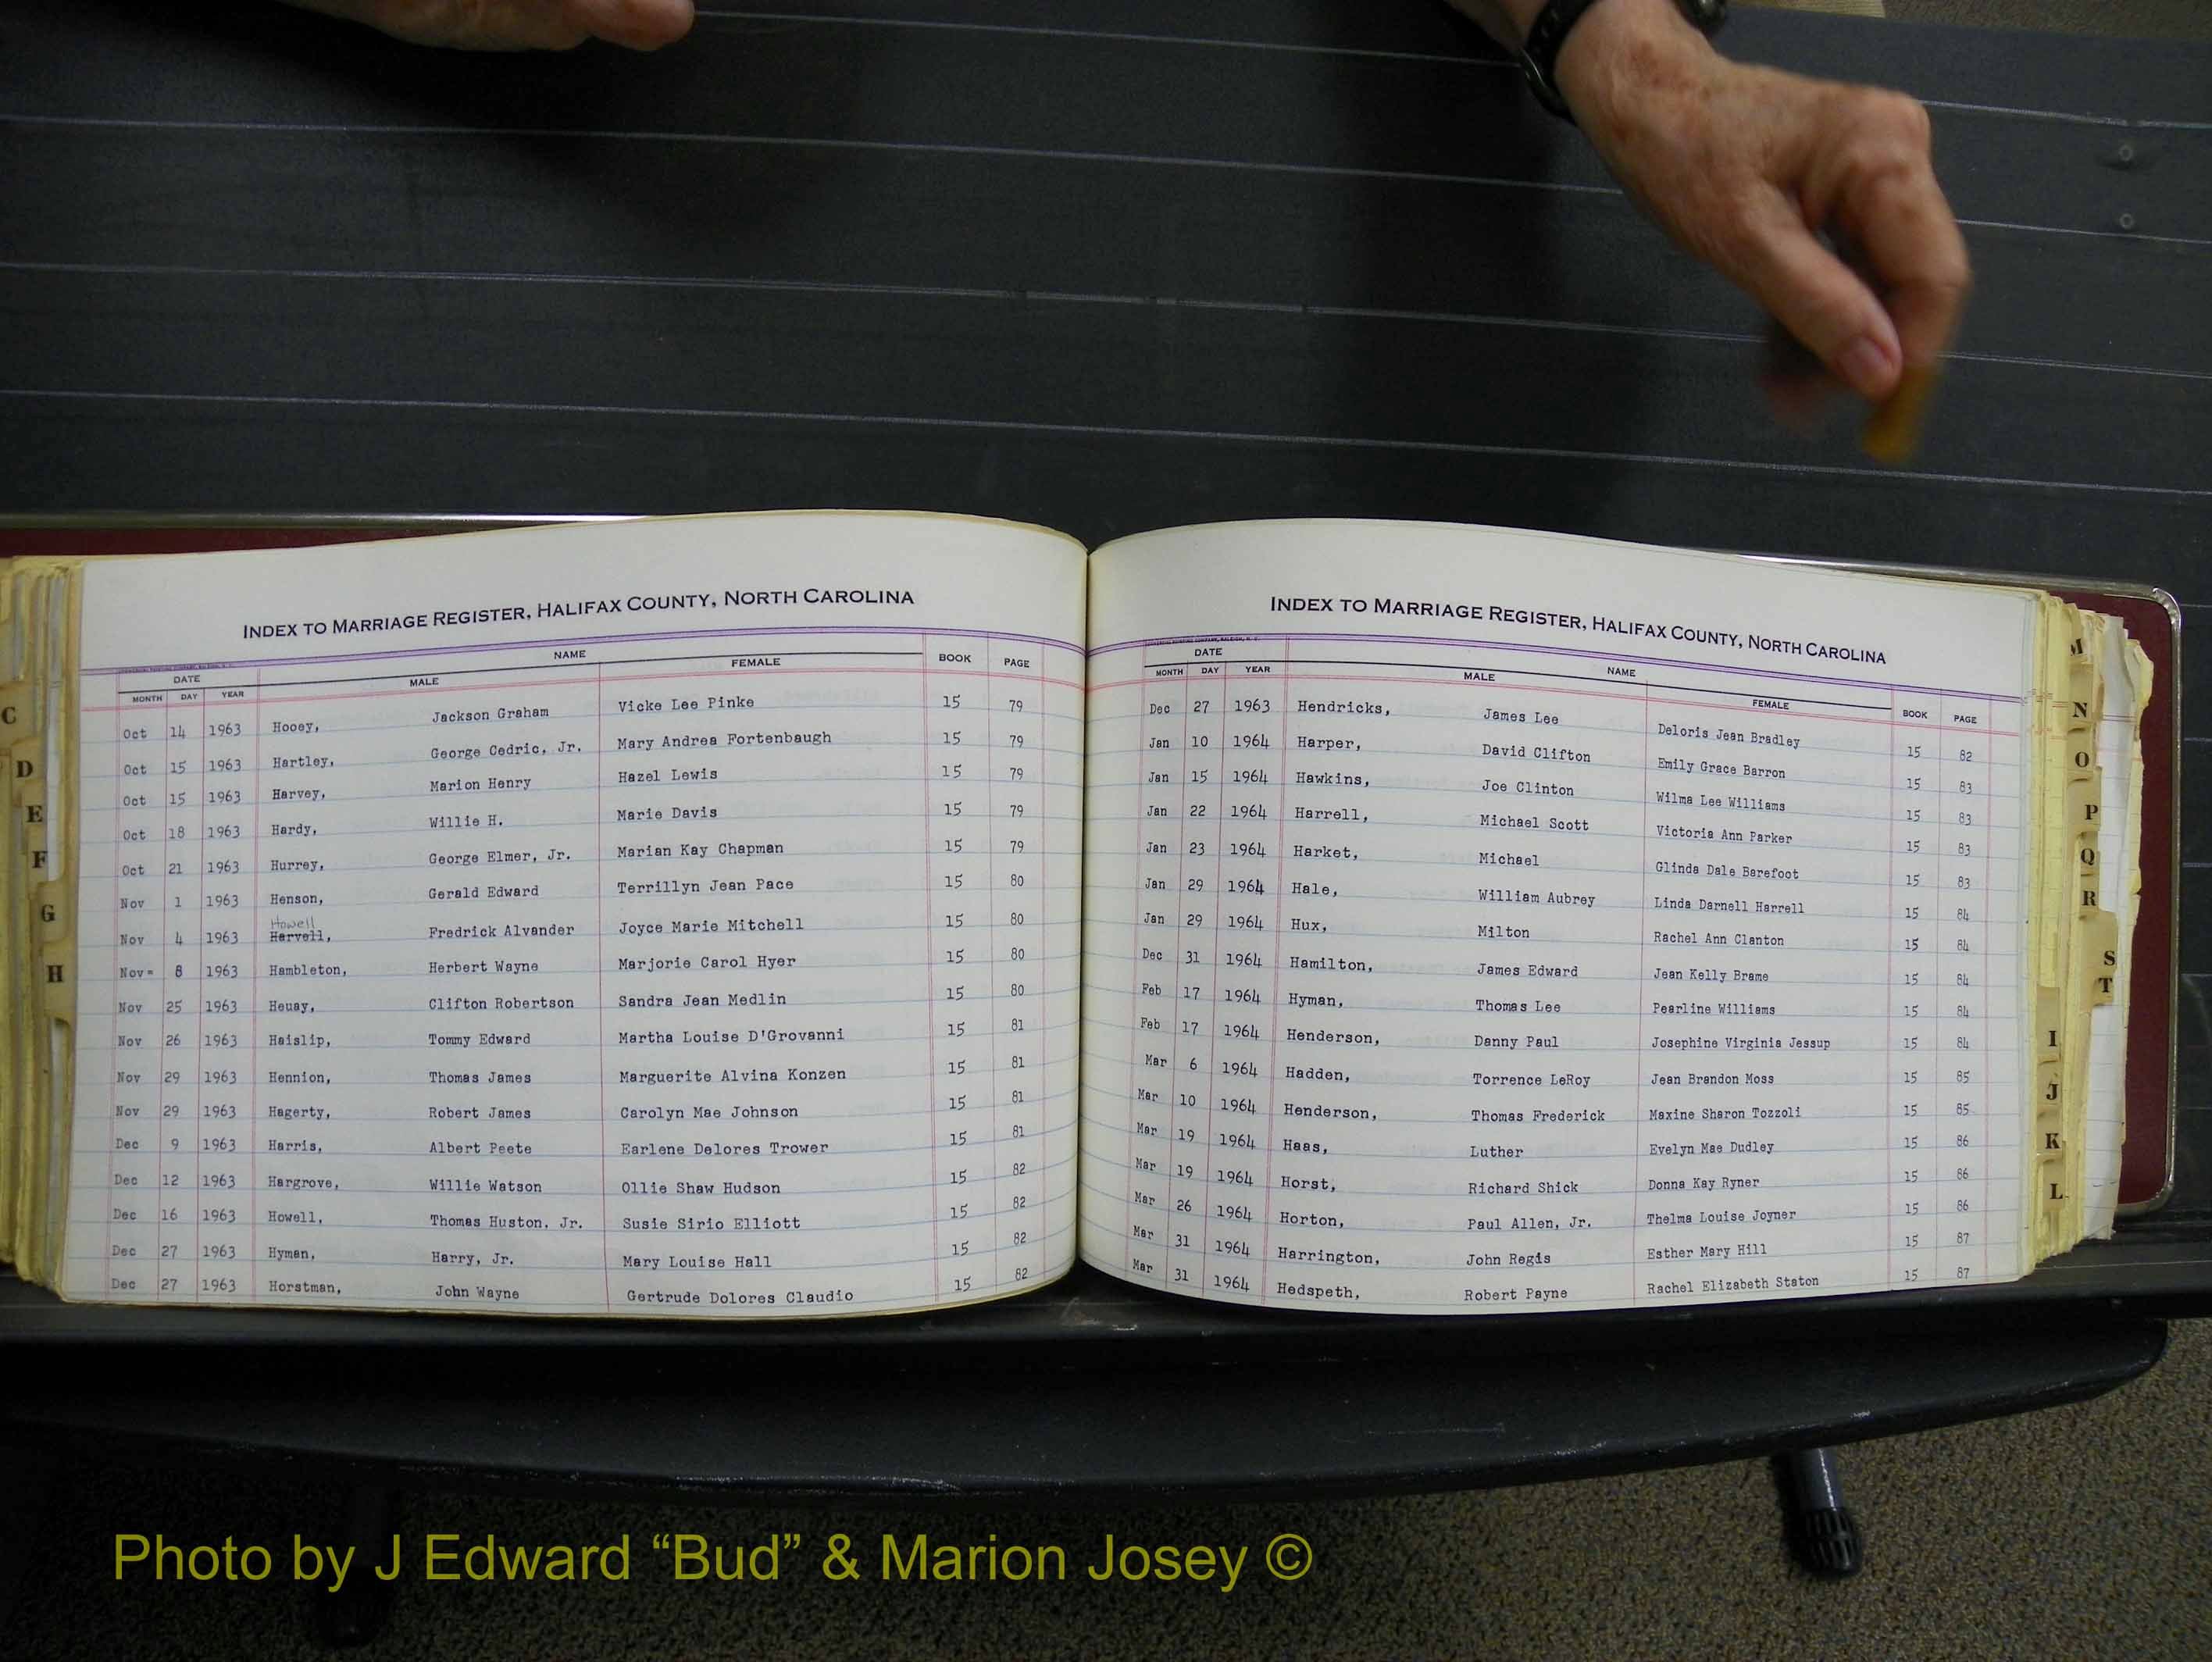 INDEX TO MARRIAGE REGISTER, HALIFAX COUNTY, NORTH CAROLINA
DATE NAME BOOK PAGE
MONTH DAY YEAR MALE FEMALE
Oct 14 1963 Hooey, Jackson Graham Vicke Lee Pinke 15 79
Oct 15 1963 Hartley, George Cedric, Jr. Mary Andrea Fortenbaugh 15 79
Oct 15 1963 Harvey, Marion Henry Hazel Lewis 15 79
Oct 18 1963 Hardy, Willie H. Marie Davis 15 79
Oct 21 1963 Hurrey, George Elmer, Jr. Marian Kay Chapman 15 79
Nov 1 1963 Henson, Gerald Edward Terrillyn Jean Pace 15 80
Howell
Nov 4 1963 Harvell, Fredrick Alvander Joyce Marie Mitchell 15 80
Nov 8 1963 Hambleton, Herbert Wayne Marjorie Carol Hyer 15 80
Nov 25 1963 Heuay, Clifton Robertson Sandra Jean Medlin 15 80
Nov 26 1963 Haislip, Tommy Edward Martha Louise D'Grovanni 15 81
Nov 29 1963 Hennion, Thomas James Marguerite Alvina Konzen 15 81
Nov 29 1963 Hagerty, Robert James Carolyn Mae Johnson 15 81
Dec 9 1963 Harris, Albert Peete Earlene Delores Trower 15 81
Dec 12 1963 Hargrove, Willie Watson Ollie Shaw Hudson 15 82
Dec 16 1963 Howell, Thomas Huston, Jr. Susie Sirio Elliott 15 82
Dec 27 1963 Hyman, Harry, Jr. Mary Louise Hall 15 82
Dec 27 1963 Horstman, John Wayne Gertrude Dolores Claudio 15 82
INDEX TO MARRIAGE REGISTER, HALIFAX COUNTY, NORTH CAROLINA
DATE NAME BOOK PAGE
MONTH DAY YEAR MALE FEMALE
Dec 27 1963 Hendricks, James Lee Deloris Jean Bradley 15 82
Jan 10 1964 Harper, David Clifton Emily Grace Barron 15 83
Jan 15 1964 Hawkins, Joe Clinton Wilma Lee Williams 15 83
Jan 22 1964 Harrell, Michael Scott Victoria Ann Parker 15 83
Jan 23 1964 Harket, Michael Glinda Dale Barefoot 15 83
Jan 29 1964 Hale, William Aubrey Linda Darnell Harrell 15 84
Jan 29 1964 Hux, Milton Rachel Ann Clanton 15 84
Dec 31 1964 Hamilton, James Edward Jean Kelly Brame 15 84
Feb 17 1964 Hyman, Thomas Lee Pearline Williams 15 84
Feb 17 1964 Henderson, Danny Paul Josephine Virginia Jessup 15 84
Mar 6 1964 Hadden, Torrence LeRoy Jean Brandon Moss 15 85
Mar 10 1964 Henderson, Thomas Frederick Maxine Sharon Tozzoli 15 85
Mar 19 1964 Haas, Luther Evelyn Mae Dudley 15 86
Mar 19 1964 Horst, Richard Shick Donna Kay Ryner 15 86
Mar 26 1964 Horton, Paul Allen, Jr. Thelma Louise Joyner 15 86
Mar 31 1964 Harrington, John Regis Esther Mary Hill 15 87
Mar 31 1964 Hedspeth, Robert Payne Rachel Elizabeth Staton 15 87
C
D
E
F
G
H
M
N
O
P
Q
R
S
T
I
J
K
L
Photo by J Edward “Bud” & Marion Josey ©